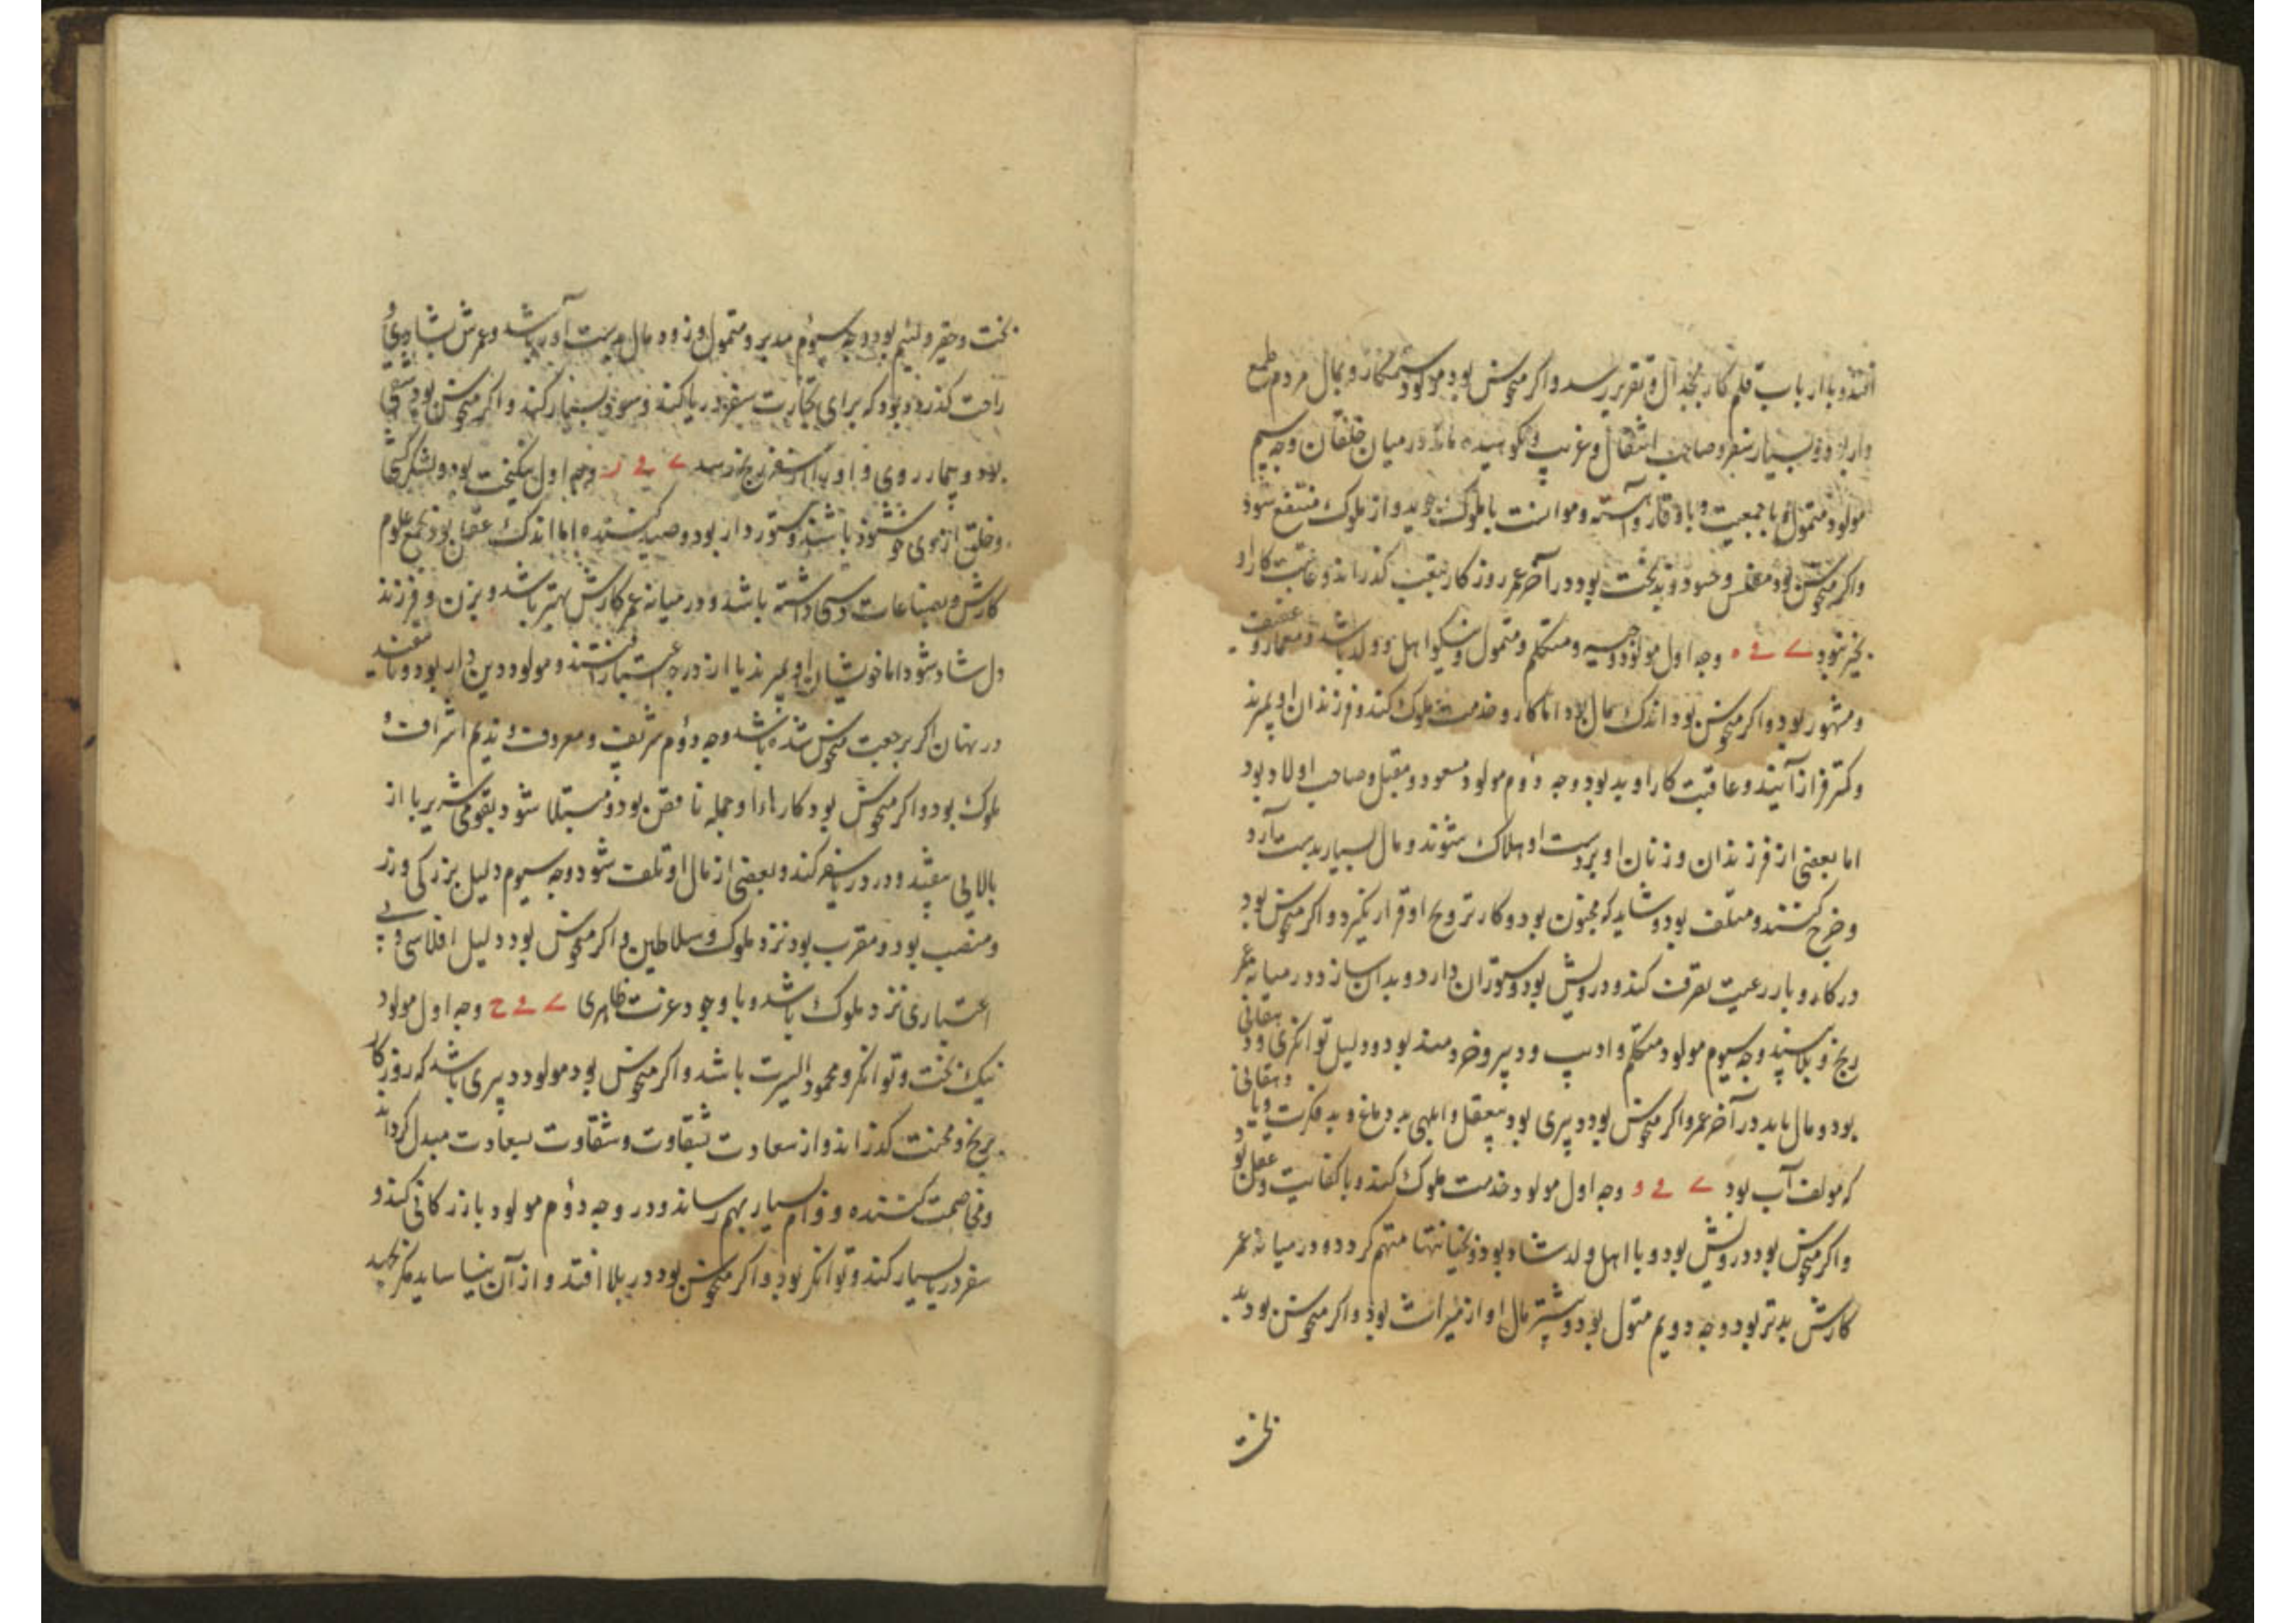 افتد و با ارباب قلم کار بجدال و تقریر رسد و اکر منحوس بود مولود ستمکار و بمال مردم طمع
دارد و بسیار سفر و صاحب انتقال و غریب و نکوهیده ماند در میان خلقان وجه سیم
مولود متمول و با جمعیت و با وقار و آهسته و موانست با ملوک جوید و از ملوک منتفع شود
واکر منحوس بود مفلس و حسود و بدبخت بود و در آخر عمر روزکار بتعب کذراند و عاقبت کار او
بخیر شود ے ے ه وجه اول مولود وجیه و متکلم و متمول و نیکو اهل و ولد باشد و معمار و
و مشهور بود و اکر منحوس بود اندک مال بود اما کار و خدمت ملوک کند و فرزندان او بمیرند
و کمتر فراز آیند و عاقبت کار او بد بود وجه دوم مولود مسعود و مقبل و صاحب اولاد بود
اما بعضی از فرزندان و زنان او بر دست او هلاک شوند و مال بسیار بدست آرد
و خرج کننده و متلف بود و شاید که مجنون بود و کار تزویج او قرار نکیرد و اکر منحوس بود
در کار و بار رعیت تصرف کند و درویش بود و ستوران دارد و بدان سازد و در میانه عمر
رنج و بلا بیند وجه سیوم مولود متکلم و ادیب و دبیر و خردمند بود و دلیل توانکری و دهقانی
بود و مال یابد در آخر عمر و اکر منحوس بود دبیری بود بیعقل و ابلهی بد دماغ و بد فکرت و یا دهقانی
که مولف آب بود ے ے و وجه اول مولود خدمت ملوک کند و با کفایت و عقل بود
و اکر منحوس بود درویش بود و با اهل و ولد شاد بود و بخیانتها متهم کردد و در میانه عمر
کارش بدتر بود وجه دویم متمول بود و بیشتر مال او از میراث بود و اکر منحوس بود بد
بخت
بخت و حقیر و لئیم بود وجه سیوم مدبر و متمول و زود مال بدست آور باشد و عمرش بشادی و
راحت کذرد و بود که برای تجارت سفر دریا کند و سود بسیار کند و اکر منحوس بود شقی
بود و بیمار روی و او را از سفر رنج رسد ے ے ز وجه اول نیکبخت بود و لشکرکشی
و خلق از وی خوشنود باشند و ستوردار بود و صید کننده اما اندک عقل بود بجمع علوم
کارش و بصناعات دستی داشته باشد و در میانه عمر کارش بهتر باشد و بزن و فرزند
دل شاد شود اما خویشان او بمیرند یا از درجه اعتبار افتند و مولود دین دار بود
در نهان اکر برجعت منحوس شده باشد وجه دوم شریف و معروف و ندیم اشراف و
ملوک بود و اکر منحوس بود کارهاء او جمله ناقص بود و مبتلا شود بقومی شریر یا از
بالایی بیفتد و در دریا سفر کند و بعضی از مال او تلف شود وجه سیوم دلیل بزرکی و زر
و منصب بود و مقرب بود نزد ملوک و سلاطین و اکر منحوس بود دلیل افلاسی و بی
اعتباری نزد ملوک باشد و با وجود عزت ظاهری ے ے ح وجه اول مولود
نیک بخت و توانکر و محمود السیرت باشد و اکر منحوس بود مولود دبیری باشد که روزکار
برنج و محنت کذراند و از سعادت بشقاوت و شقاوت بسعادت مبدل کرداند
و مخاصمت کننده و وام بسیار بهم رساند و در وجه دوم مولود بازرکانی کند و
سفر دریا بسیار کند و توانکر بود و اکر منحوس بود در بلا افتد و از آن نیاساید مکر بجهد